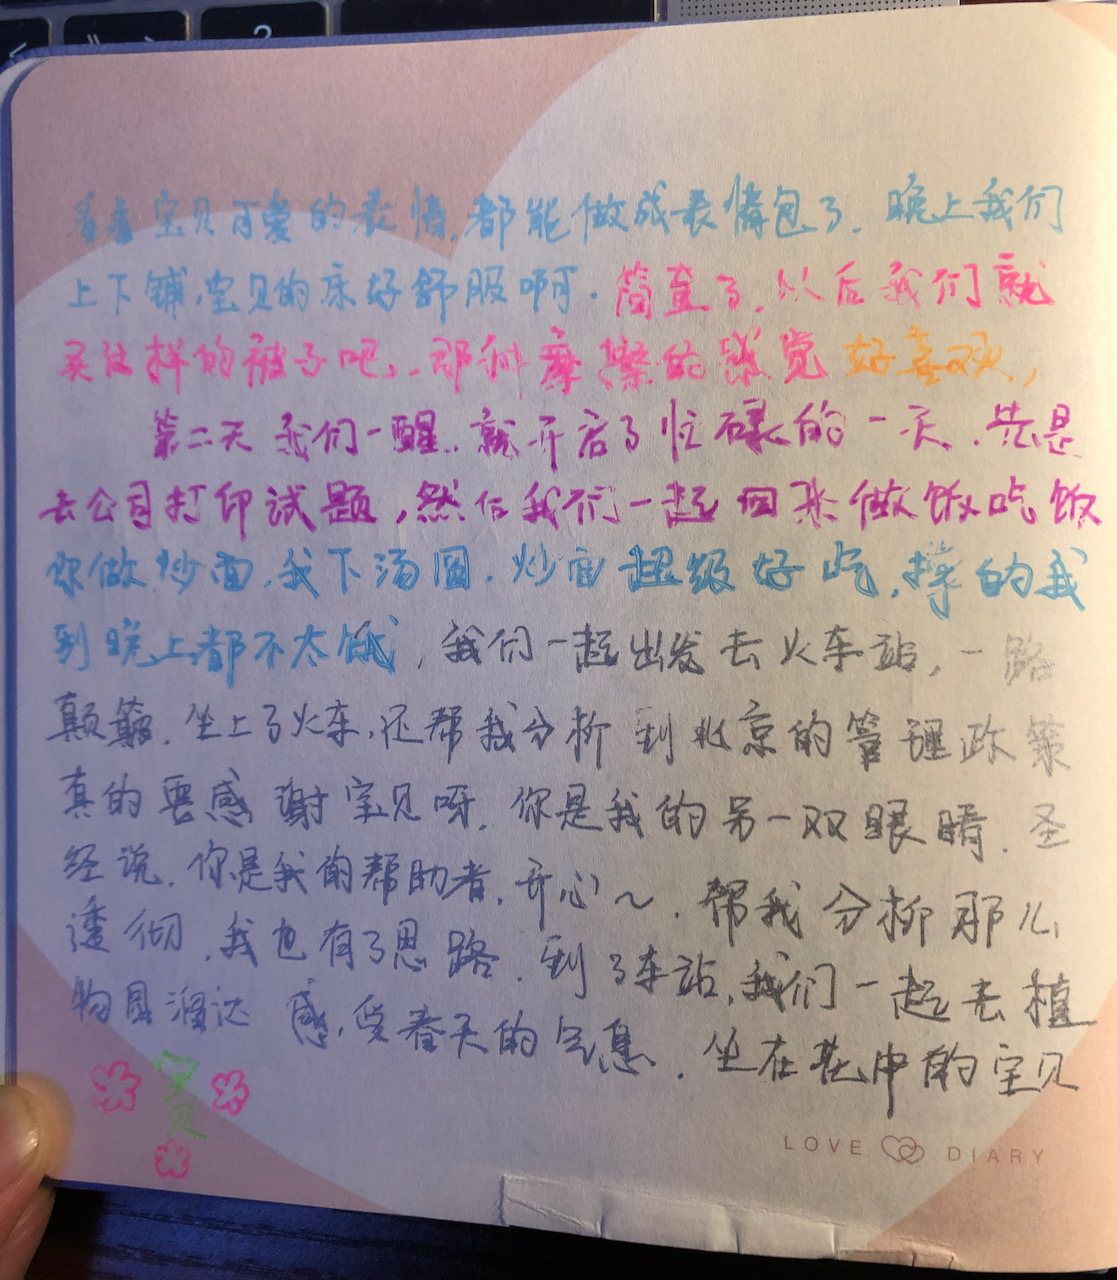 看着宝贝可爱的表情,都能做成表情包了.晚上我们
上下铺,宝贝的床好舒服啊.简直了,以后我们就
买这样的被子吧.那种摩擦的感觉好喜欢,
第二天我们一醒.就开启了忙碌的一天.先是
去公司打印试题,然后我们一起回来做饭吃饭
你做炒面,我下汤圆.炒面超级好吃,撑的我
到晚上都不太饿,我们一起出发去火车站,一路
颠簸.坐上了火车,还帮我分析到北京的管理政策
真的要感谢宝贝呀.你是我的另一双眼睛.圣
经说.你是我的帮助者.开心~.帮我分析那么
透彻.我也有了思路.到了车站,我们一起去植
物园溜达 感受春天的气息.坐在花中的宝贝
宝贝
LOVE DIARY